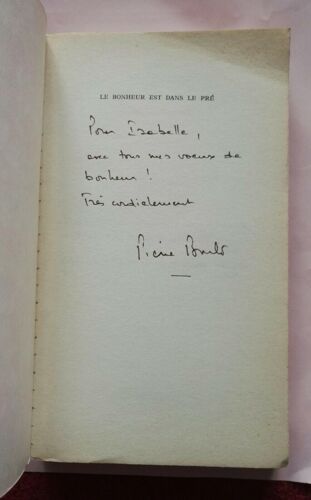 LE BONHEUR EST DANS LE PRÉ
Pour Isabelle,
avec tous mes voeux de
bonheur !
Très cordialement
Pierre